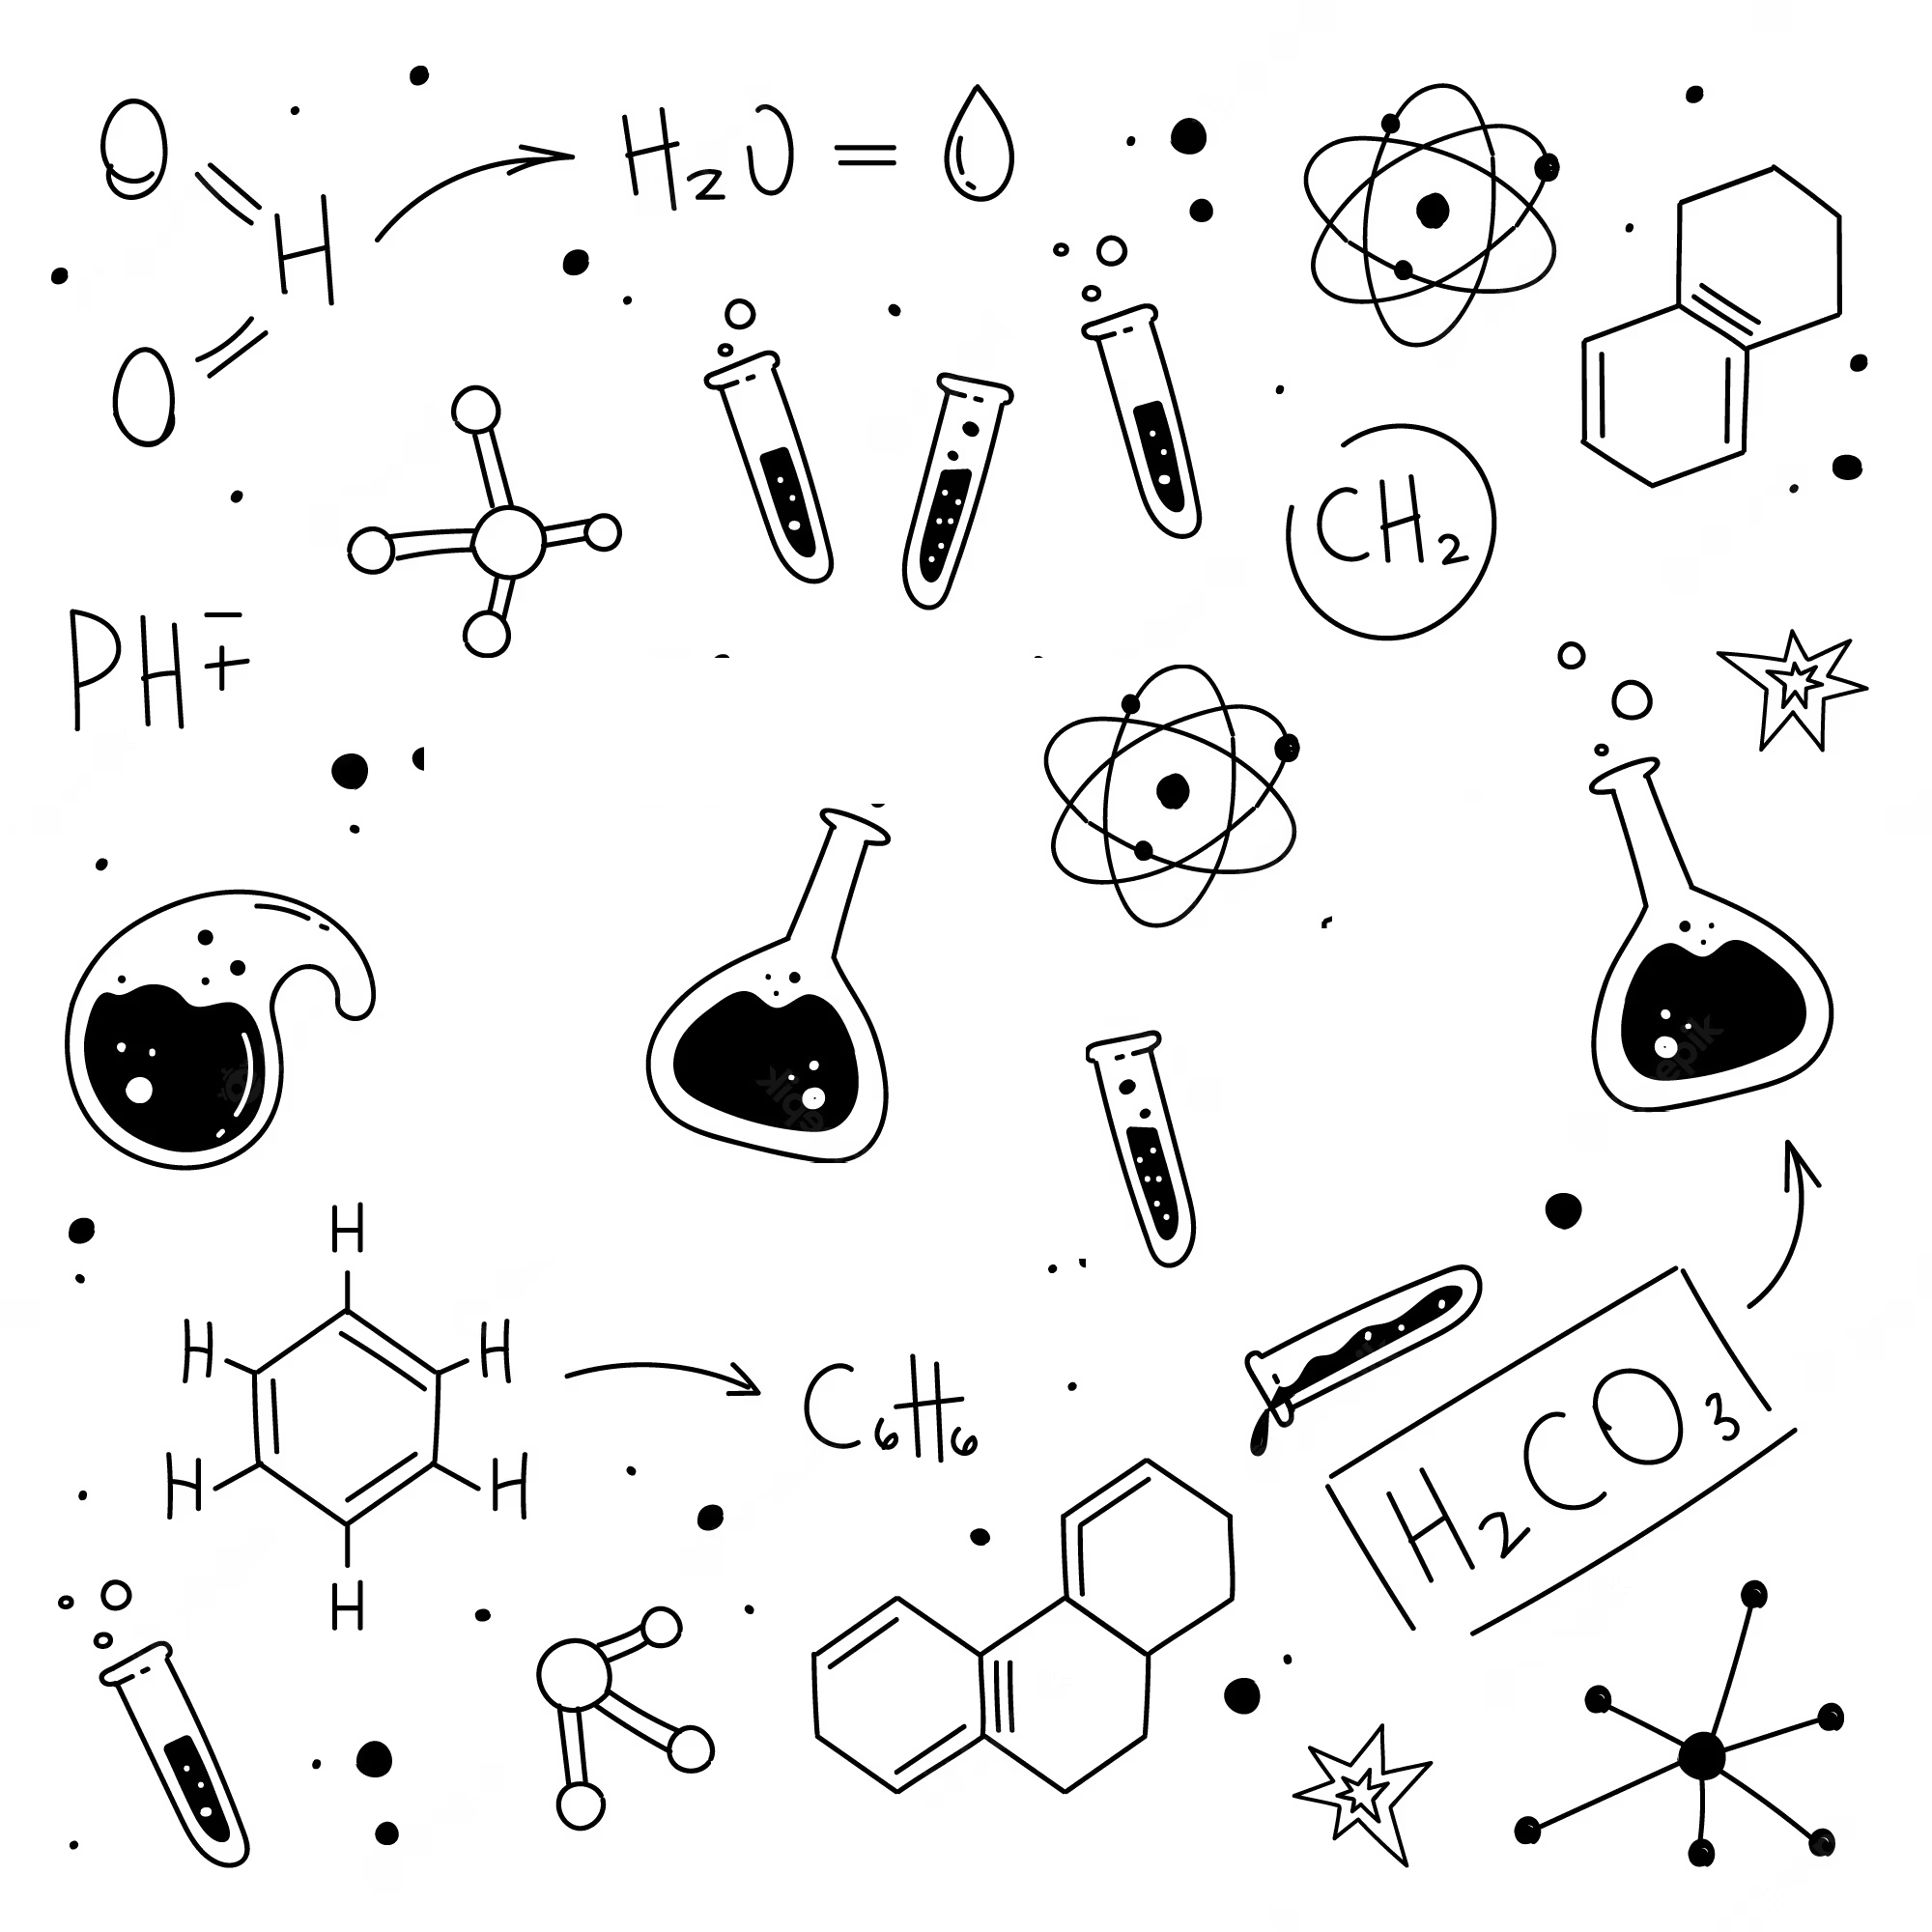 O
H
O
H₂O =
CH₂
PH∓
H
H H
H H
H
C₆H₆
H₂CO₃